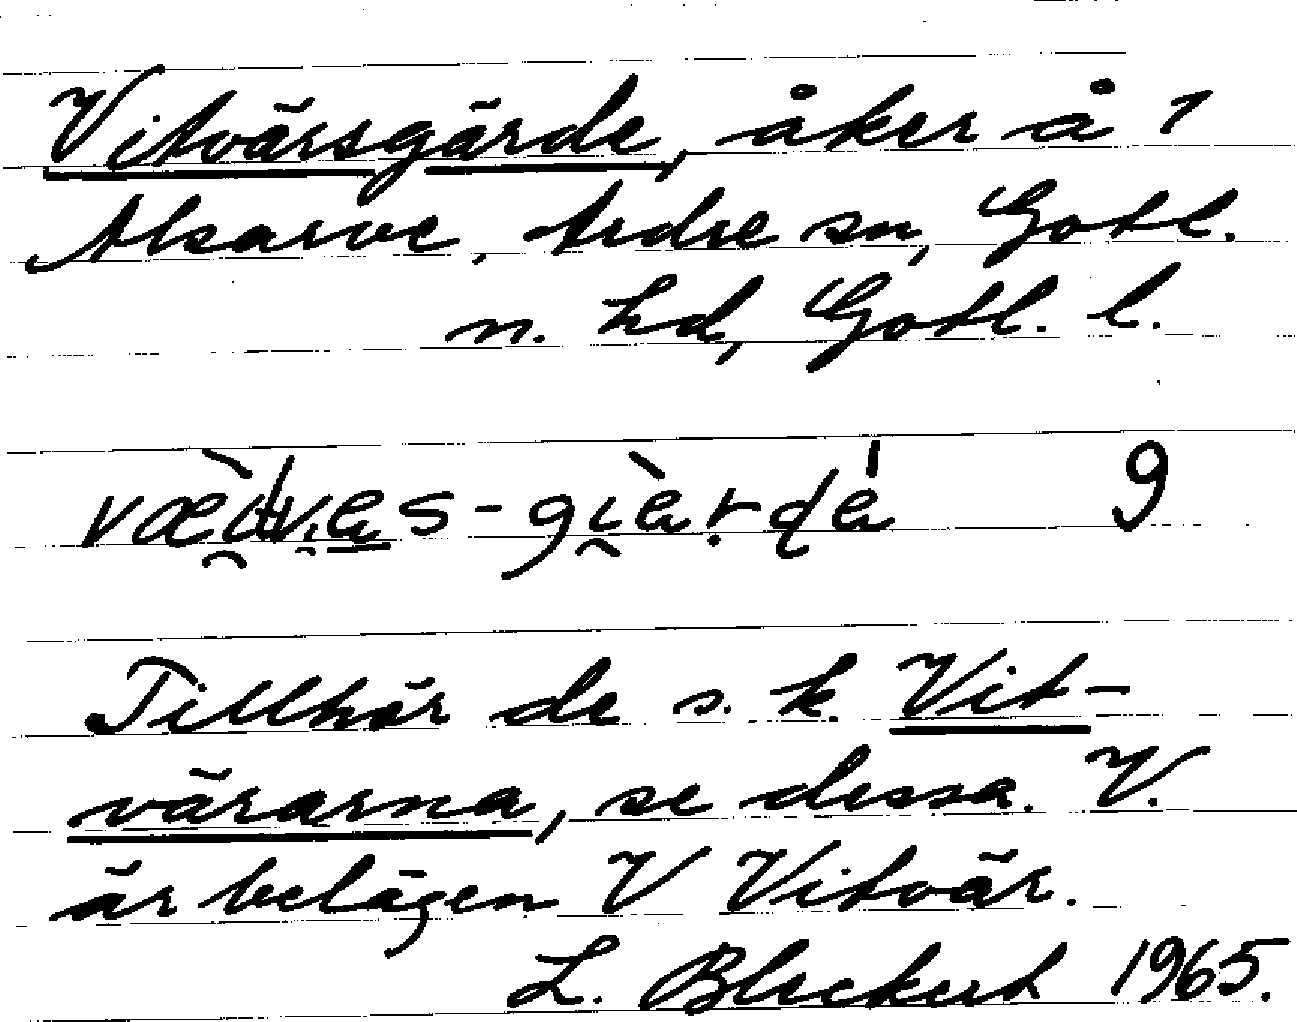 Vitvärsgärde, åker å 1
Alsarve, Ardre sn, Gotl.
n. hd, Gotl. l.
9
Tillhör de s. k. Vit-
värarna, se dessa. V.
är belägen V Vitvär.
L. Bleckert 1965.